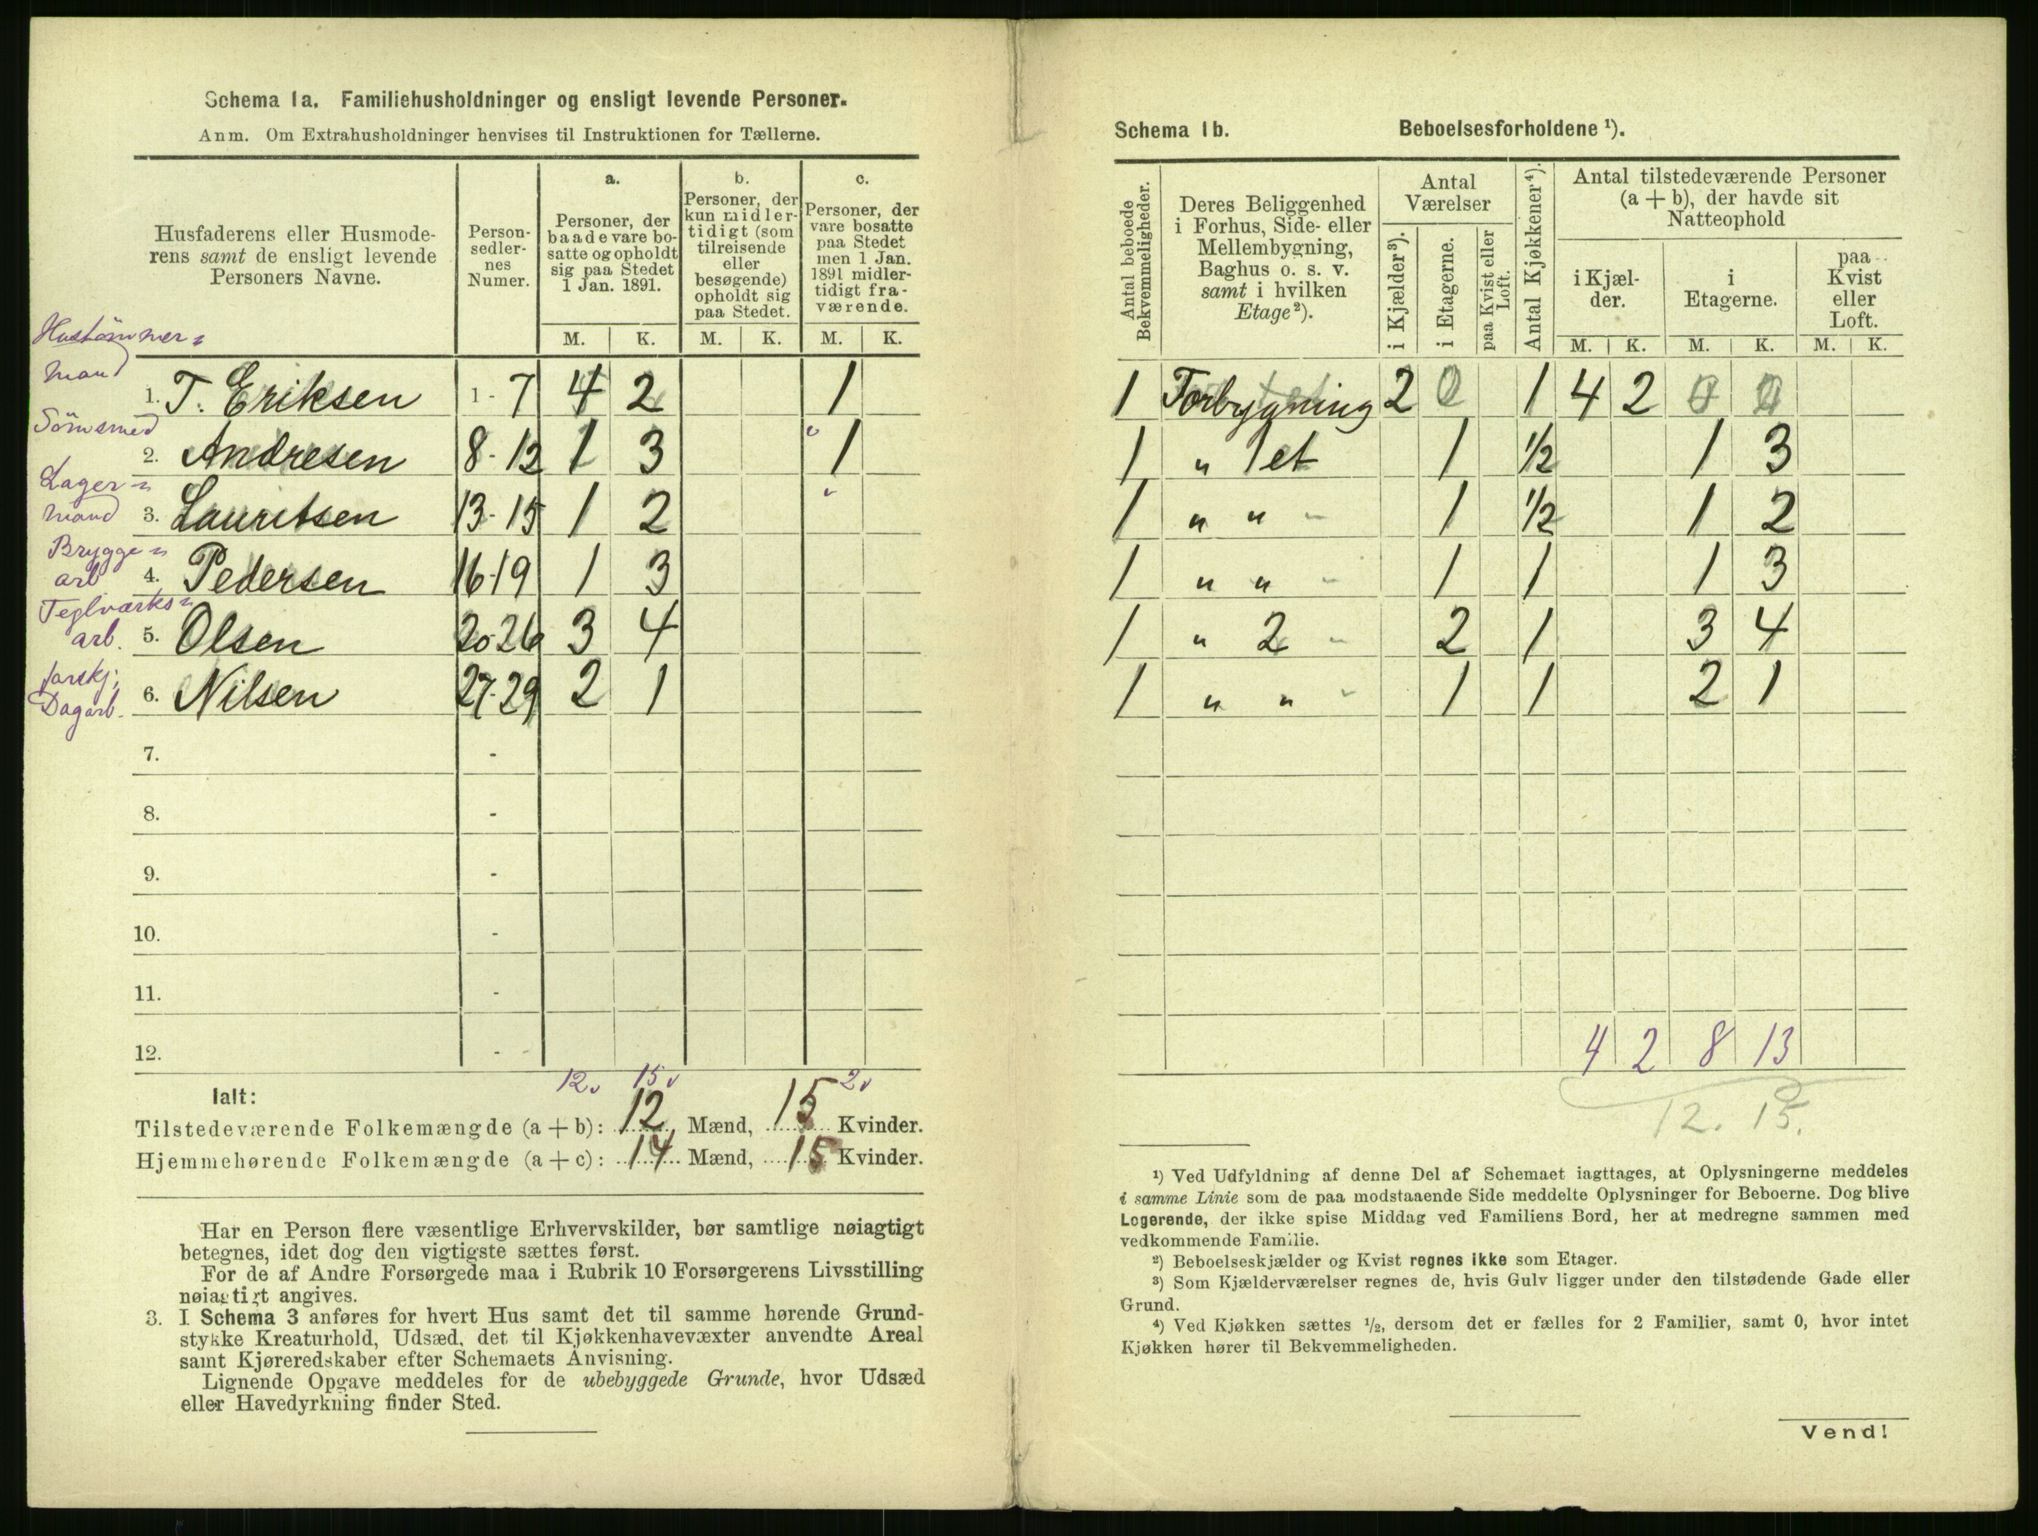 Schema 1a. Familiehusholdninger og ensligt levende Personer.
Anm. Om Extrahusholdninger henvises til Instruktionen for Tællerne.
Husfaderens eller Husmode-
rens samt de ensligt levende
Personers Navne.
Person-
sedler-
nes
Numer.
a.
Personer, der
baade vare bo-
satte og opholdt
sig paa Stedet
1 Jan. 1891.
b.
Personer, der
kun midler-
tidigt (som
tilreisende
eller
besøgende)
opholdt sig
paa Stedet.
c.
Personer, der
vare bosatte
paa Stedet
men 1 Jan.
1891 midler-
tidigt fra-
værende.
M. K. M. K. M. K.
Hustömmer-
mand
1. T. Eriksen 1-7 4 2 1
Sömsmed
2. Andresen 8-12 1 3 1
Lager-
mand
3. Lauritsen 13-15 1 2
Brygge-
arb
4. Pedersen 16-19 1 3
Teglværks-
arb.
5. Olsen 20-26 3 4
forskj.
Dagarb.
6. Nilsen 27-29 2 1
7. -
8. -
9. -
10. -
11. -
12. -
12 15 2
Ialt:
Tilstedeværende Folkemængde (a + b): 12 Mænd, 15 Kvinder.
Hjemmehørende Folkemængde (a + c): 14 Mænd, 15 Kvinder.
Har en Person flere væsentlige Erhvervskilder, bør samtlige nøiagtigt
betegnes, idet dog den vigtigste sættes først.
For de af Andre Forsørgede maa i Rubrik 10 Forsørgerens Livsstilling
nøiagtigt angives.
3. I Schema 3 anføres for hvert Hus samt det til samme hørende Grund-
stykke Kreaturhold, Udsæd, det til Kjøkkenhavevæxter anvendte Areal
samt Kjøreredskaber efter Schemaets Anvisning.
Lignende Opgave meddeles for de ubebyggede Grunde, hvor Udsæd
eller Havedyrkning finder Sted.
Schema 1b. Beboelsesforholdene ¹).
Antal beboede
Bekvemmeligheder.
Deres Beliggenhed
i Forhus, Side- eller
Mellembygning,
Baghus o. s. v.
samt i hvilken
Etage²).
Antal
Værelser
i Kjælder³).
i Etagerne.
paa Kvist eller
Loft.
Antal Kjøkkener⁴).
Antal tilstedeværende Personer
(a + b), der havde sit
Natteophold
i Kjæl-
der.
i
Etagerne.
paa
Kvist
eller
Loft.
M. K. M. K. M. K.
1 Forbygning 2 0 1 4 2 0 0
1 " 1 et 1 1/2 1 3
1 " " - 1 1/2 1 2
1 " " - 1 1 1 3
1 " 2 - 2 1 3 4
1 " " - 1 1 2 1
4 2 8 13
12. 15.
¹) Ved Udfyldning af denne Del af Schemaet iagttages, at Oplysningerne meddeles
i samme Linie som de paa modstaaende Side meddelte Oplysninger for Beboerne. Dog blive
Logerende, der ikke spise Middag ved Familiens Bord, her at medregne sammen med
vedkommende Familie.
²) Beboelseskjælder og Kvist regnes ikke som Etager.
³) Som Kjælderværelser regnes de, hvis Gulv ligger under den tilstødende Gade eller
Grund.
⁴) Ved Kjøkken sættes 1/2, dersom det er fælles for 2 Familier, samt 0, hvor intet
Kjøkken hører til Bekvemmeligheden.
Vend!